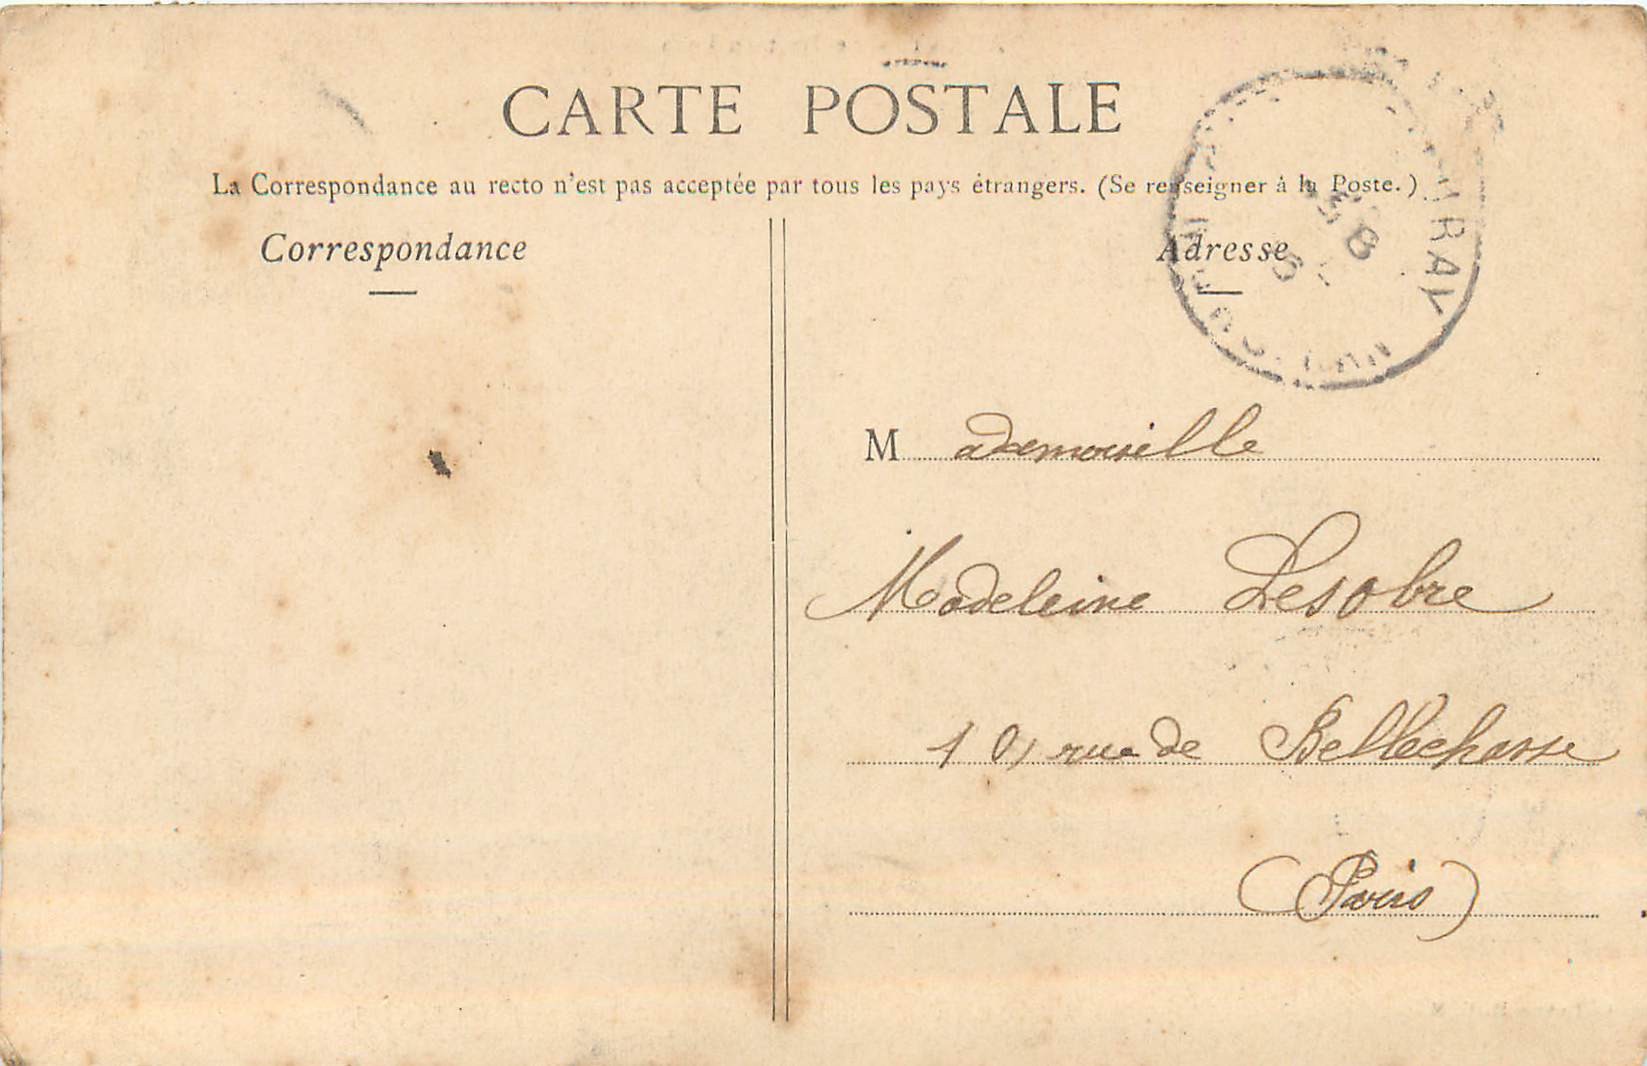 CARTE POSTALE
La Correspondance au recto n'est pas acceptée par tous les pays étrangers. (Se renseigner à la Poste.)
Correspondance
Adresse
Mademoiselle
Madeleine Lesobre
10, rue de Bellechasse
(Paris)